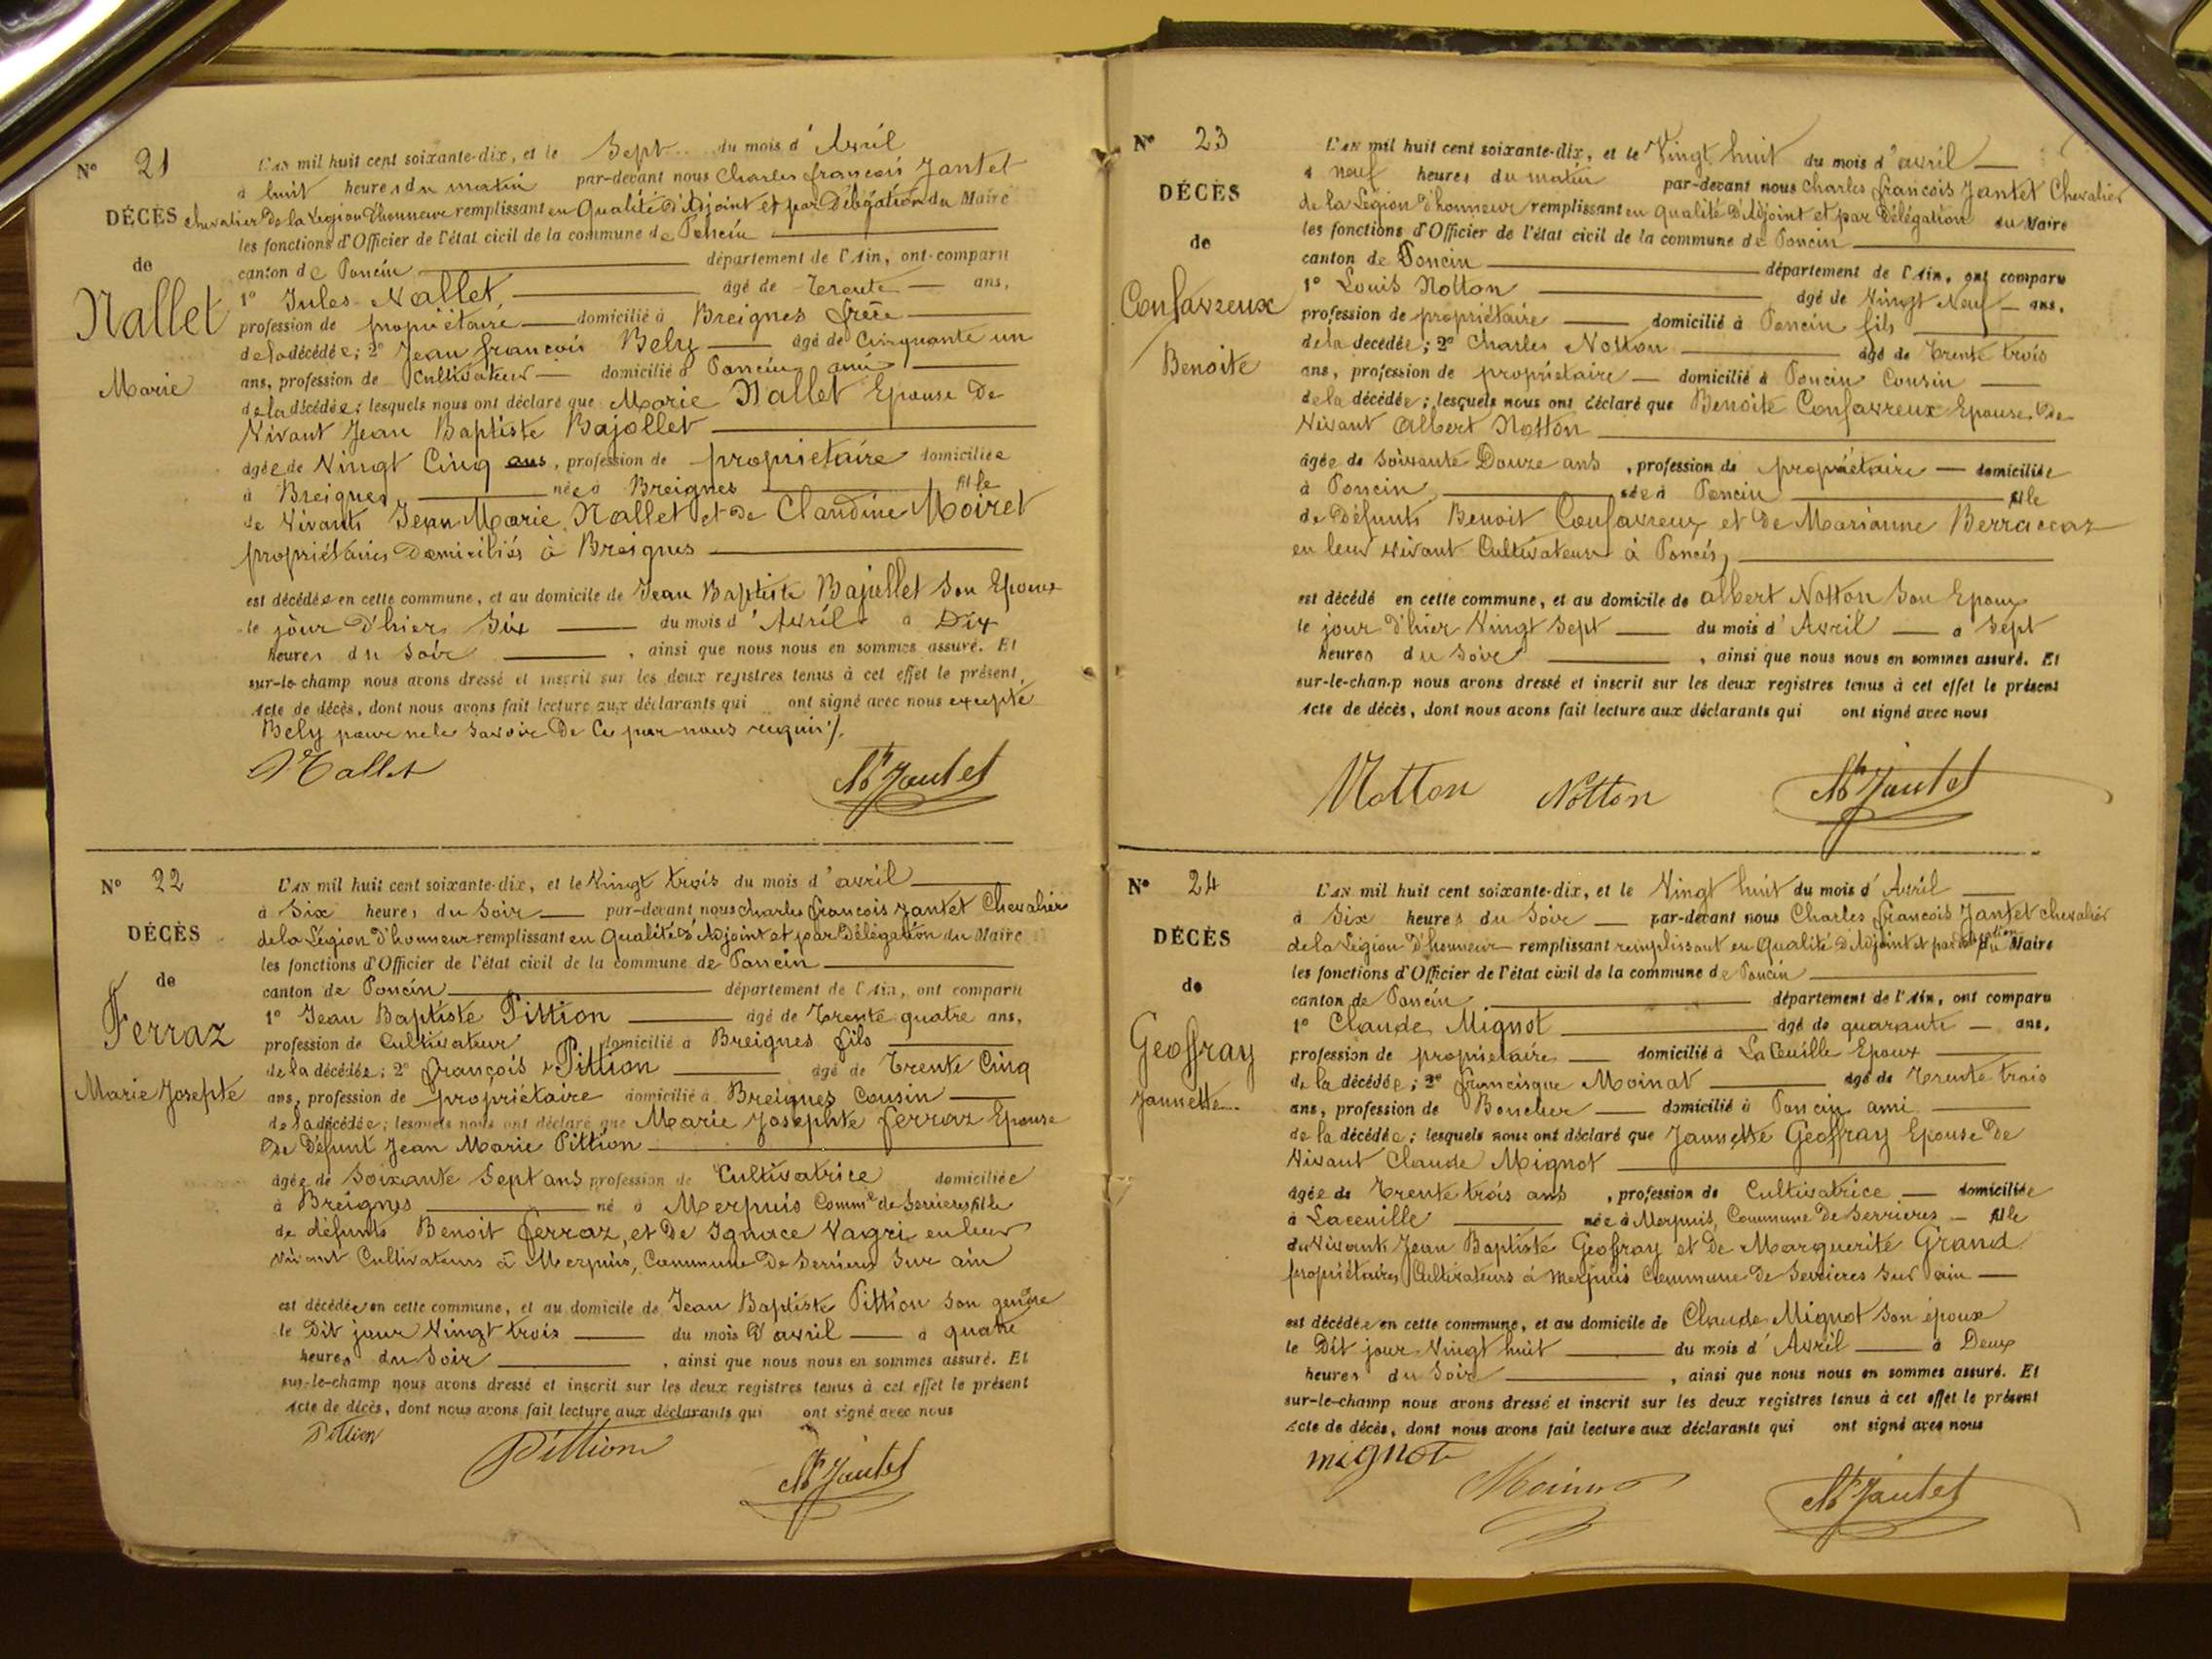 N° 21
DÉCÈS
de
Nallet
Marie
L'AN mil huit cent soixante-dix, et le Sept du mois d'Avril
à huit heures du matin par-devant nous Charles françois Jantet
chevalier De la Légion D'honneur remplissant en Qualité D'Adjoint et par Délégation du Maire
les fonctions d'Officier de l'état civil de la commune de Poncin
canton de Poncin département de l'Ain, ont comparu
1° Jules Nallet, âgé de Trente ans,
profession de propriétaire domicilié à Breignes frère
de la décédée; 2° Jean françois Bely âgé de Cinquante un
ans, profession de Cultivateur domicilié à Poncin ami
de la décédée; lesquels nous ont déclaré que Marie Nallet Epouse De
Vivant Jean Baptiste Bajollet
âgée de Vingt Cinq ans, profession de propriétaire domiciliée
à Breignes, née à Breignes fille
de Vivants Jean Marie Nallet et De Claudine Moiret
propriétaires Domiciliés à Breignes
est décédée en cette commune, et au domicile de Jean Baptiste Bajollet Son Epoux
le jour D'hier Six du mois d'Avril à Dix
heures du Soir, ainsi que nous nous en sommes assuré. Et
sur-le-champ nous avons dressé et inscrit sur les deux registres tenus à cet effet le présent
Acte de décès, dont nous avons fait lecture aux déclarants qui ont signé avec nous excepté
Bely pour ne le Savoir De Ce par nous requis /.
Nallet Ch Jantet
N° 22
DÉCÈS
de
Ferraz
Marie Josephte
L'AN mil huit cent soixante-dix, et le Vingt trois du mois d'avril
à Six heures du Soir par-devant nous Charles françois Jantet Chevalier
de la Légion D'honneur remplissant en Qualité D'Adjoint et par Délégation du Maire
les fonctions d'Officier de l'état civil de la commune de Poncin
canton de Poncin département de l'Ain, ont comparu
1° Jean Baptiste Pittion âgé de Trente quatre ans,
profession de Cultivateur domicilié à Breignes fils
de la décédée; 2° françois Pittion âgé de Trente Cinq
ans, profession de propriétaire domicilié à Breignes Cousin
de la décédée; lesquels nous ont déclaré que Marie Josephte ferraz Epouse
De Défunt Jean Marie Pittion
âgée de Soixante Sept ans profession de Cultivatrice domiciliée
à Breignes né à Merpuis Comm^e de Serrieres fille
de défunts Benoit ferraz, et De Ignace Vagri en leur
vivant Cultivateurs à Merpuis, Commune De Serrieres Sur ain
est décédée en cette commune, et au domicile de Jean Baptiste Pittion Son gendre
le Dit jour Vingt trois du mois d'avril à quatre
heures du Soir, ainsi que nous nous en sommes assuré. Et
sur-le-champ nous avons dressé et inscrit sur les deux registres tenus à cet effet le présent
Acte de décès, dont nous avons fait lecture aux déclarants qui ont signé avec nous
Pittion Pittion Ch Jantet
N° 23
DÉCÈS
de
Confavreux
Benoite
L'AN mil huit cent soixante-dix, et le Vingt huit du mois d'avril
à neuf heures du matin par-devant nous Charles françois Jantet Chevalier
de la Légion D'honneur remplissant en qualité D'Adjoint et par Délégation du Maire
les fonctions d'Officier de l'état civil de la commune de Poncin
canton de Poncin département de l'Ain, ont comparu
1° Louis Notton âgé de Vingt Neuf ans,
profession de propriétaire domicilié à Poncin fils
de la décédée; 2° Charles Notton âgé de Trente trois
ans, profession de propriétaire domicilié à Poncin Cousin
de la décédée; lesquels nous ont déclaré que Benoite Confavreux Epouse De
Vivant Albert Notton
âgée de Soixante Douze ans, profession de propriétaire domiciliée
à Poncin, née à Poncin fille
de Défunts Benoit Confavreux et De Marianne Berraccaz
en leur vivant Cultivateurs à Poncin,
est décédé en cette commune, et au domicile de Albert Notton Son Epoux
le jour D'hier Vingt Sept du mois d'Avril à Sept
heures du Soir, ainsi que nous nous en sommes assuré. Et
sur-le-champ nous avons dressé et inscrit sur les deux registres tenus à cet effet le présent
Acte de décès, dont nous avons fait lecture aux déclarants qui ont signé avec nous
Notton Notton Ch Jantet
N° 24
DÉCÈS
de
Geoffray
Jannette
L'AN mil huit cent soixante-dix, et le Vingt huit du mois d'Avril
à Six heures du Soir par-devant nous Charles françois Jantet chevalier
de la Légion D'honneur remplissant remplissant en Qualité D'Adjoint et par délégation du Maire
les fonctions d'Officier de l'état civil de la commune de Poncin
canton de Poncin département de l'Ain, ont comparu
1° Claude Mignot âgé de quarante ans,
profession de propriétaire domicilié à Laceuille Epoux
de la décédée; 2° francisque Moinat âgé de Trente trois
ans, profession de Boucher domicilié à Poncin ami
de la décédée; lesquels nous ont déclaré que Jannette Geoffray Epouse De
Vivant Claude Mignot
âgée de Trente trois ans, profession de Cultivatrice domiciliée
à Laceuille née à Merpuis, Commune De Serrieres fille
du Vivants Jean Baptiste Geoffray et de Marguerite Grand
propriétaires Cultivateurs à Merpuis Commune de Serrieres Sur ain
est décédée en cette commune, et au domicile de Claude Mignot Son époux
le Dit jour Vingt huit du mois d'Avril à Deux
heures du Soir, ainsi que nous nous en sommes assuré. Et
sur-le-champ nous avons dressé et inscrit sur les deux registres tenus à cet effet le présent
Acte de décès, dont nous avons fait lecture aux déclarants qui ont signé avec nous
mignot Moinat Ch Jantet